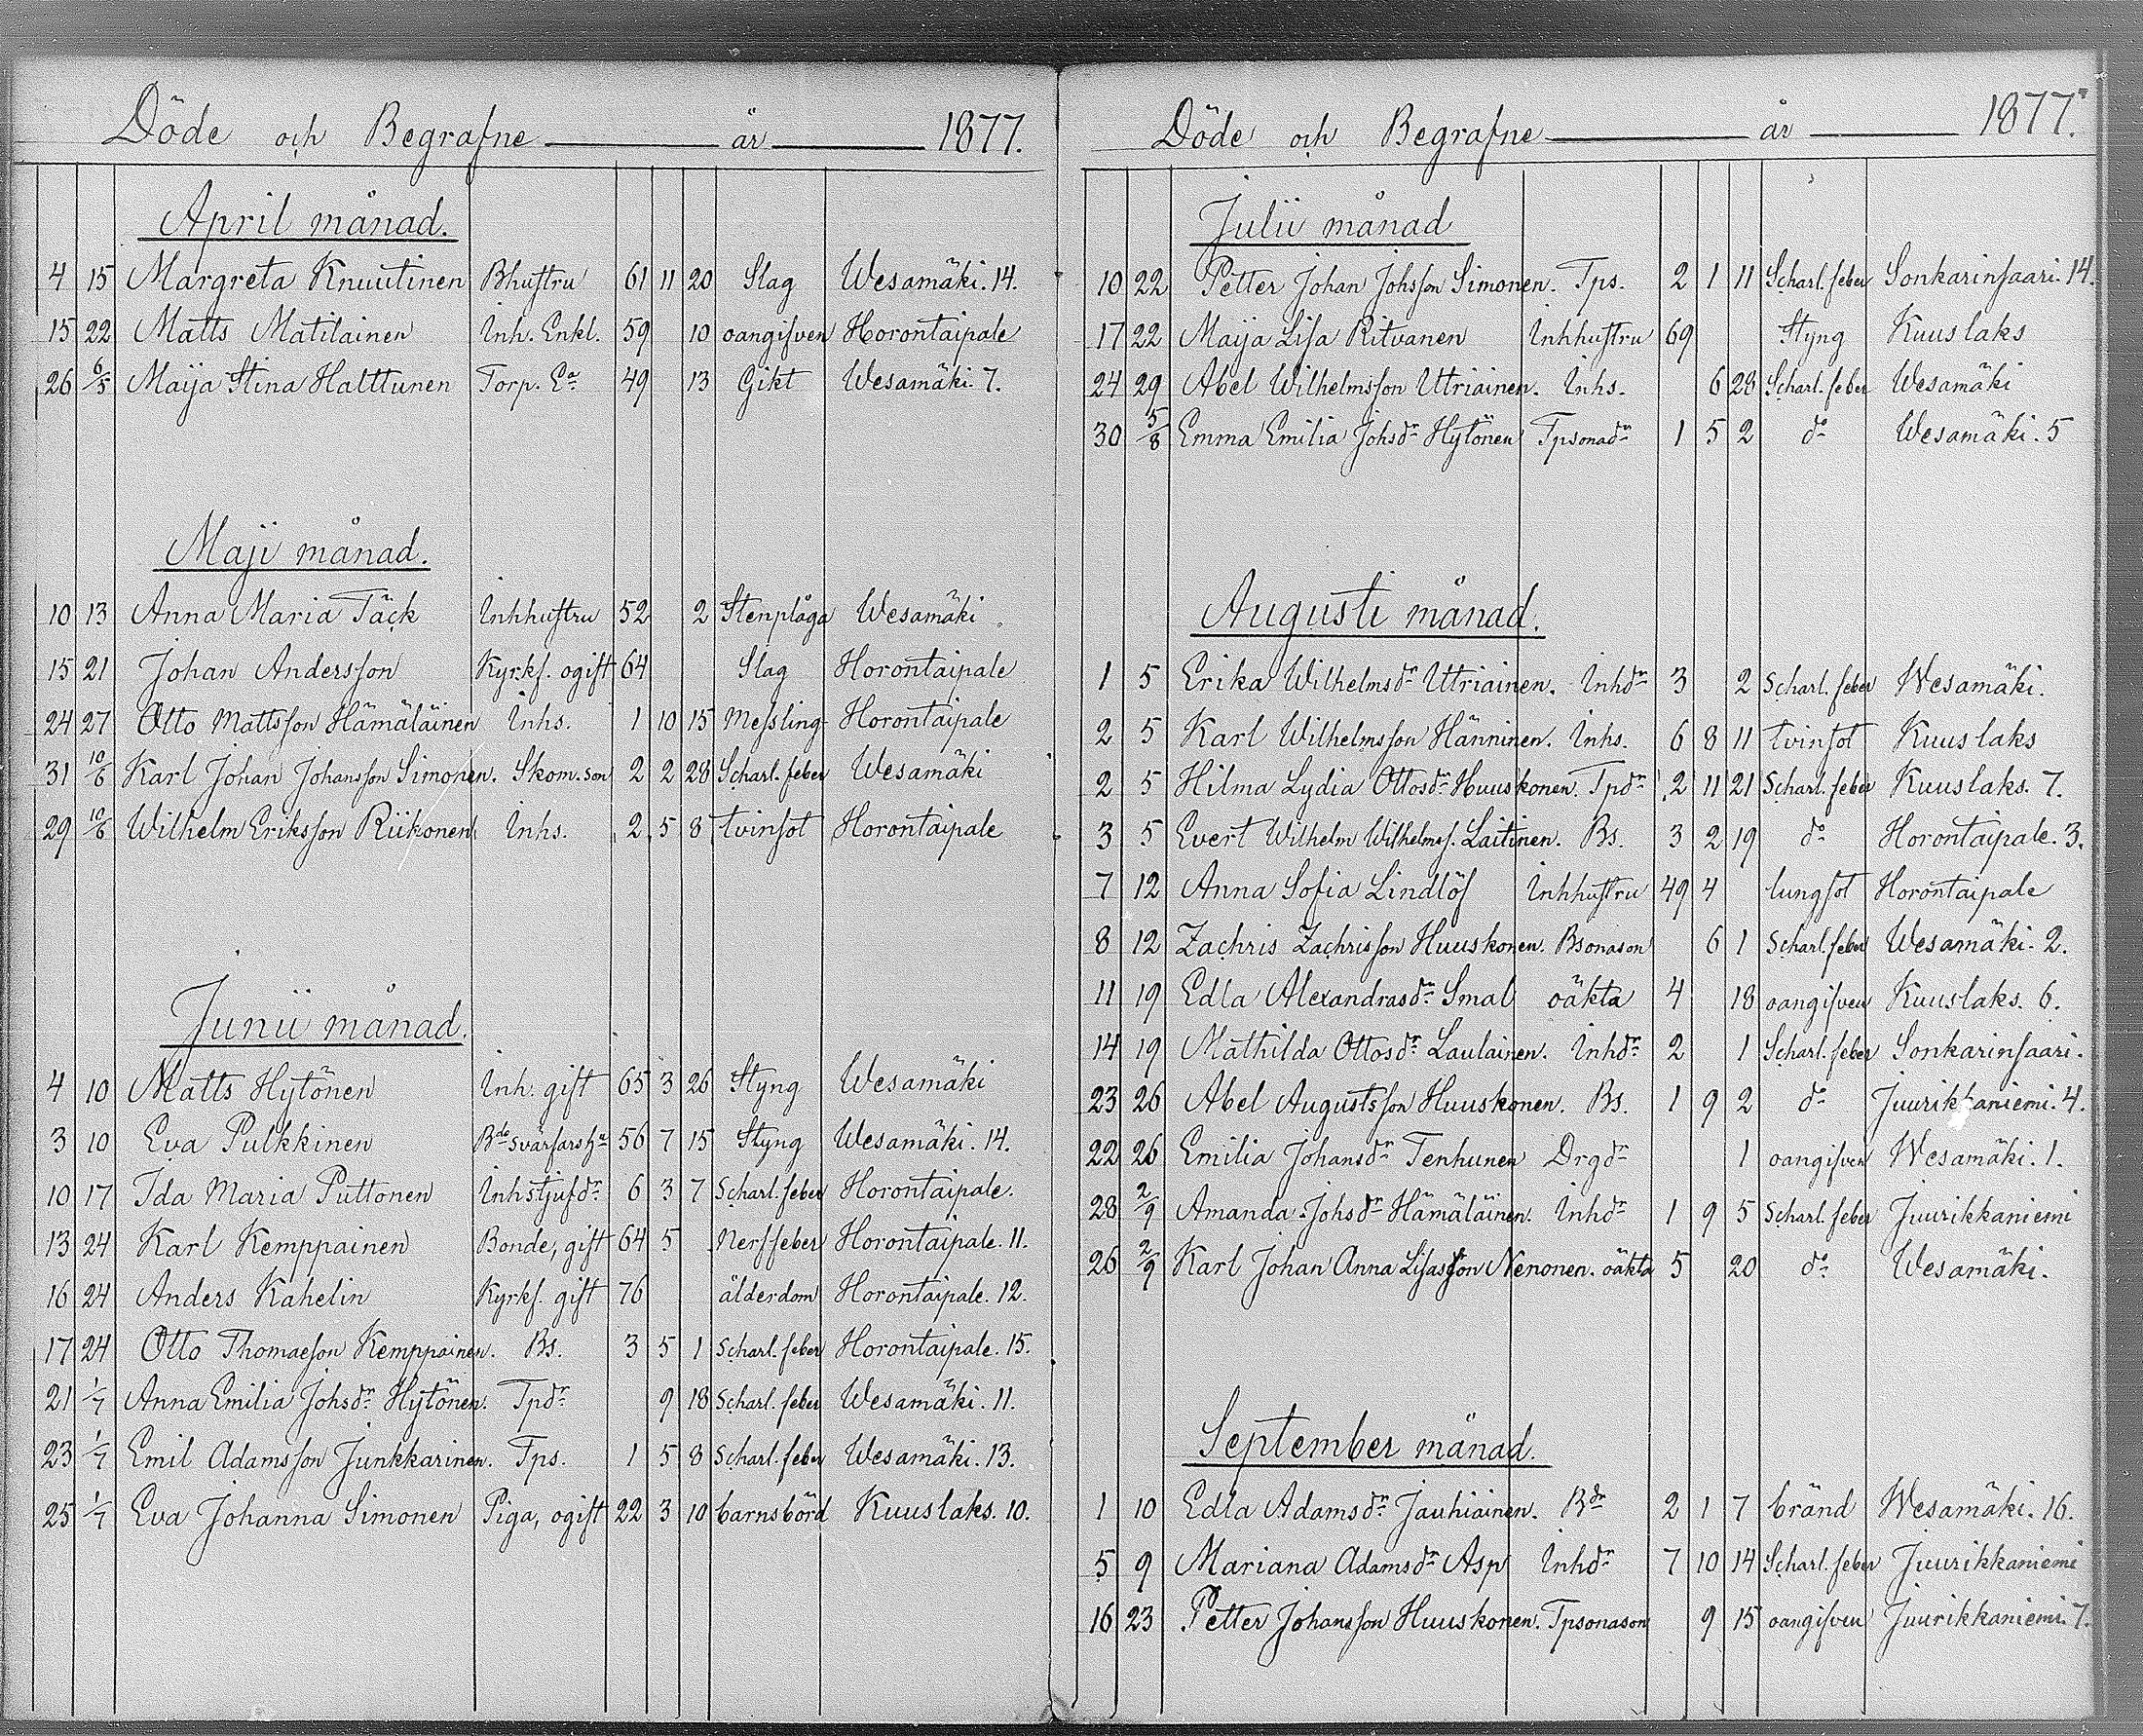 Döde och Begrafne år 1877.
April månad.
4 15 Margreta Knuutinen Bhustru 61 11 20 Slag Wesamäki. 14.
15 22 Matts Matilainen Inh. Enkl. 59 10 oangifven Horontaipale
26 6/5 Maija Stina Halttunen Torp. Ea 49 13 Gikt Wesamäki. 7.
Maji månad.
10 13 Anna Maria Täck Inhhustru 52 2 Stenplåga Wesamäki
15 21 Johan Andersson Kyrkf. ogift 64 Slag Horontaipale
24 27 Otto Mattsson Hämäläinen Inhs. 1 10 15 Messling Horontaipale
31 10/6 Karl Johan Johansson Simonen. Skom. son 2 2 28 Scharl. feber Wesamäki
29 10/6 Wilhelm Eriksson Riikonen Inhs. 2 5 8 tvinsot Horontaipale
Junii månad.
4 10 Matts Hytönen Inh. gift 65 3 26 Styng Wesamäki
3 10 Eva Pulkkinen 56 7 15 Styng Wesamäki. 14.
10 17 Ida Maria Puttonen Inhstjufdr 6 3 7 Scharl. feber Horontaipale.
13 24 Karl Kemppainen Bonde, gift 64 5 Nerffeber Horontaipale. 11.
16 24 Anders Kahelin Kyrkf. gift 76 ålderdom Horontaipale. 12.
17 24 Otto Thomasson Kemppainen. Bs. 3 5 1 Scharl. feber Horontaipale. 15.
21 1/7 Anna Emilia Johsdr Hytönen. Tpdr 9 18 Scharl. feber Wesamäki. 11.
23 1/7 Emil Adamsson Junkkarinen. Tps. 1 5 8 Scharl. feber Wesamäki. 13.
25 1/7 Eva Johanna Simonen Piga, ogift 22 3 10 barnsbörd Kuuslaks. 10.
Döde och Begrafne år 1877.
Julii månad
10 22 Petter Johan Johsson Simonen. Tps. 2 1 11 Scharl. feber Sonkarinsaari. 14.
17 22 Maija Lisa Ritvanen Inhhustru 69 Styng Kuuslaks
24 29 Abel Wilhelmsson Utriainen. Inhs. 6 28 Scharl. feber Wesamäki
30 5/8 Emma Emilia Johsdr Hytönen Tpsonadr 1 5 2 do Wesamäki. 5
Augusti månad.
1 5 Erika Wilhelmsdr Uttriainen. Inhdr 3 2 Scharl. feber Wesamäki.
2 5 Karl Wilhelmsson Hänninen. Inhs. 6 8 11 tvinsot Kuuslaks
2 5 Hilma Lydia Ottosdr Huuskonen. Tpdr 2 11 21 Scharl. feber Kuuslaks. 7.
3 5 Evert Wilhelm Wilhelmss. Laitinen. Bs. 3 2 19 do Horontaipale. 3.
7 12 Anna Sofia Lindlöf Inhhustru 49 4 lungsot Horontaipale
8 12 Zachris Zachrisson Huuskonen. Bsonason 6 1 Scharl. feber Wesamäki. 2.
11 19 Edla Alexandrasdr Smal oäkta 4 18 oangifven Kuuslaks. 6.
14 19 Mathilda Ottosdr Laulainen. Inhdr 2 1 Scharl. feber Sonkarinsaari.
23 26 Abel Augustsson Huuskonen. Bs. 1 9 2 do Juurikkaniemi. 4.
22 26 Emilia Johansdr Tenhunen Drgdr 1 oangifven Wesamäki. 1.
28 2/9 Amanda Johsdr Hämäläinen. Inhdr 1 9 5 Scharl. feber Juurikkaniemi
26 2/9 Karl Johan Anna Lisasson Nenonen. oäkta 5 20 do Wesamäki.
September månad.
1 10 Edla Adamsdr Jauhiainen. Bdr 2 1 7 bränd Wesamäki. 16.
5 9 Mariana Adamsdr Asp Inhdr 7 10 14 Scharl. feber Juurikkaniemi
16 23 Petter Johansson Huuskonen. Tpsonason 9 15 oangifven Juurikkaniemi. 7.